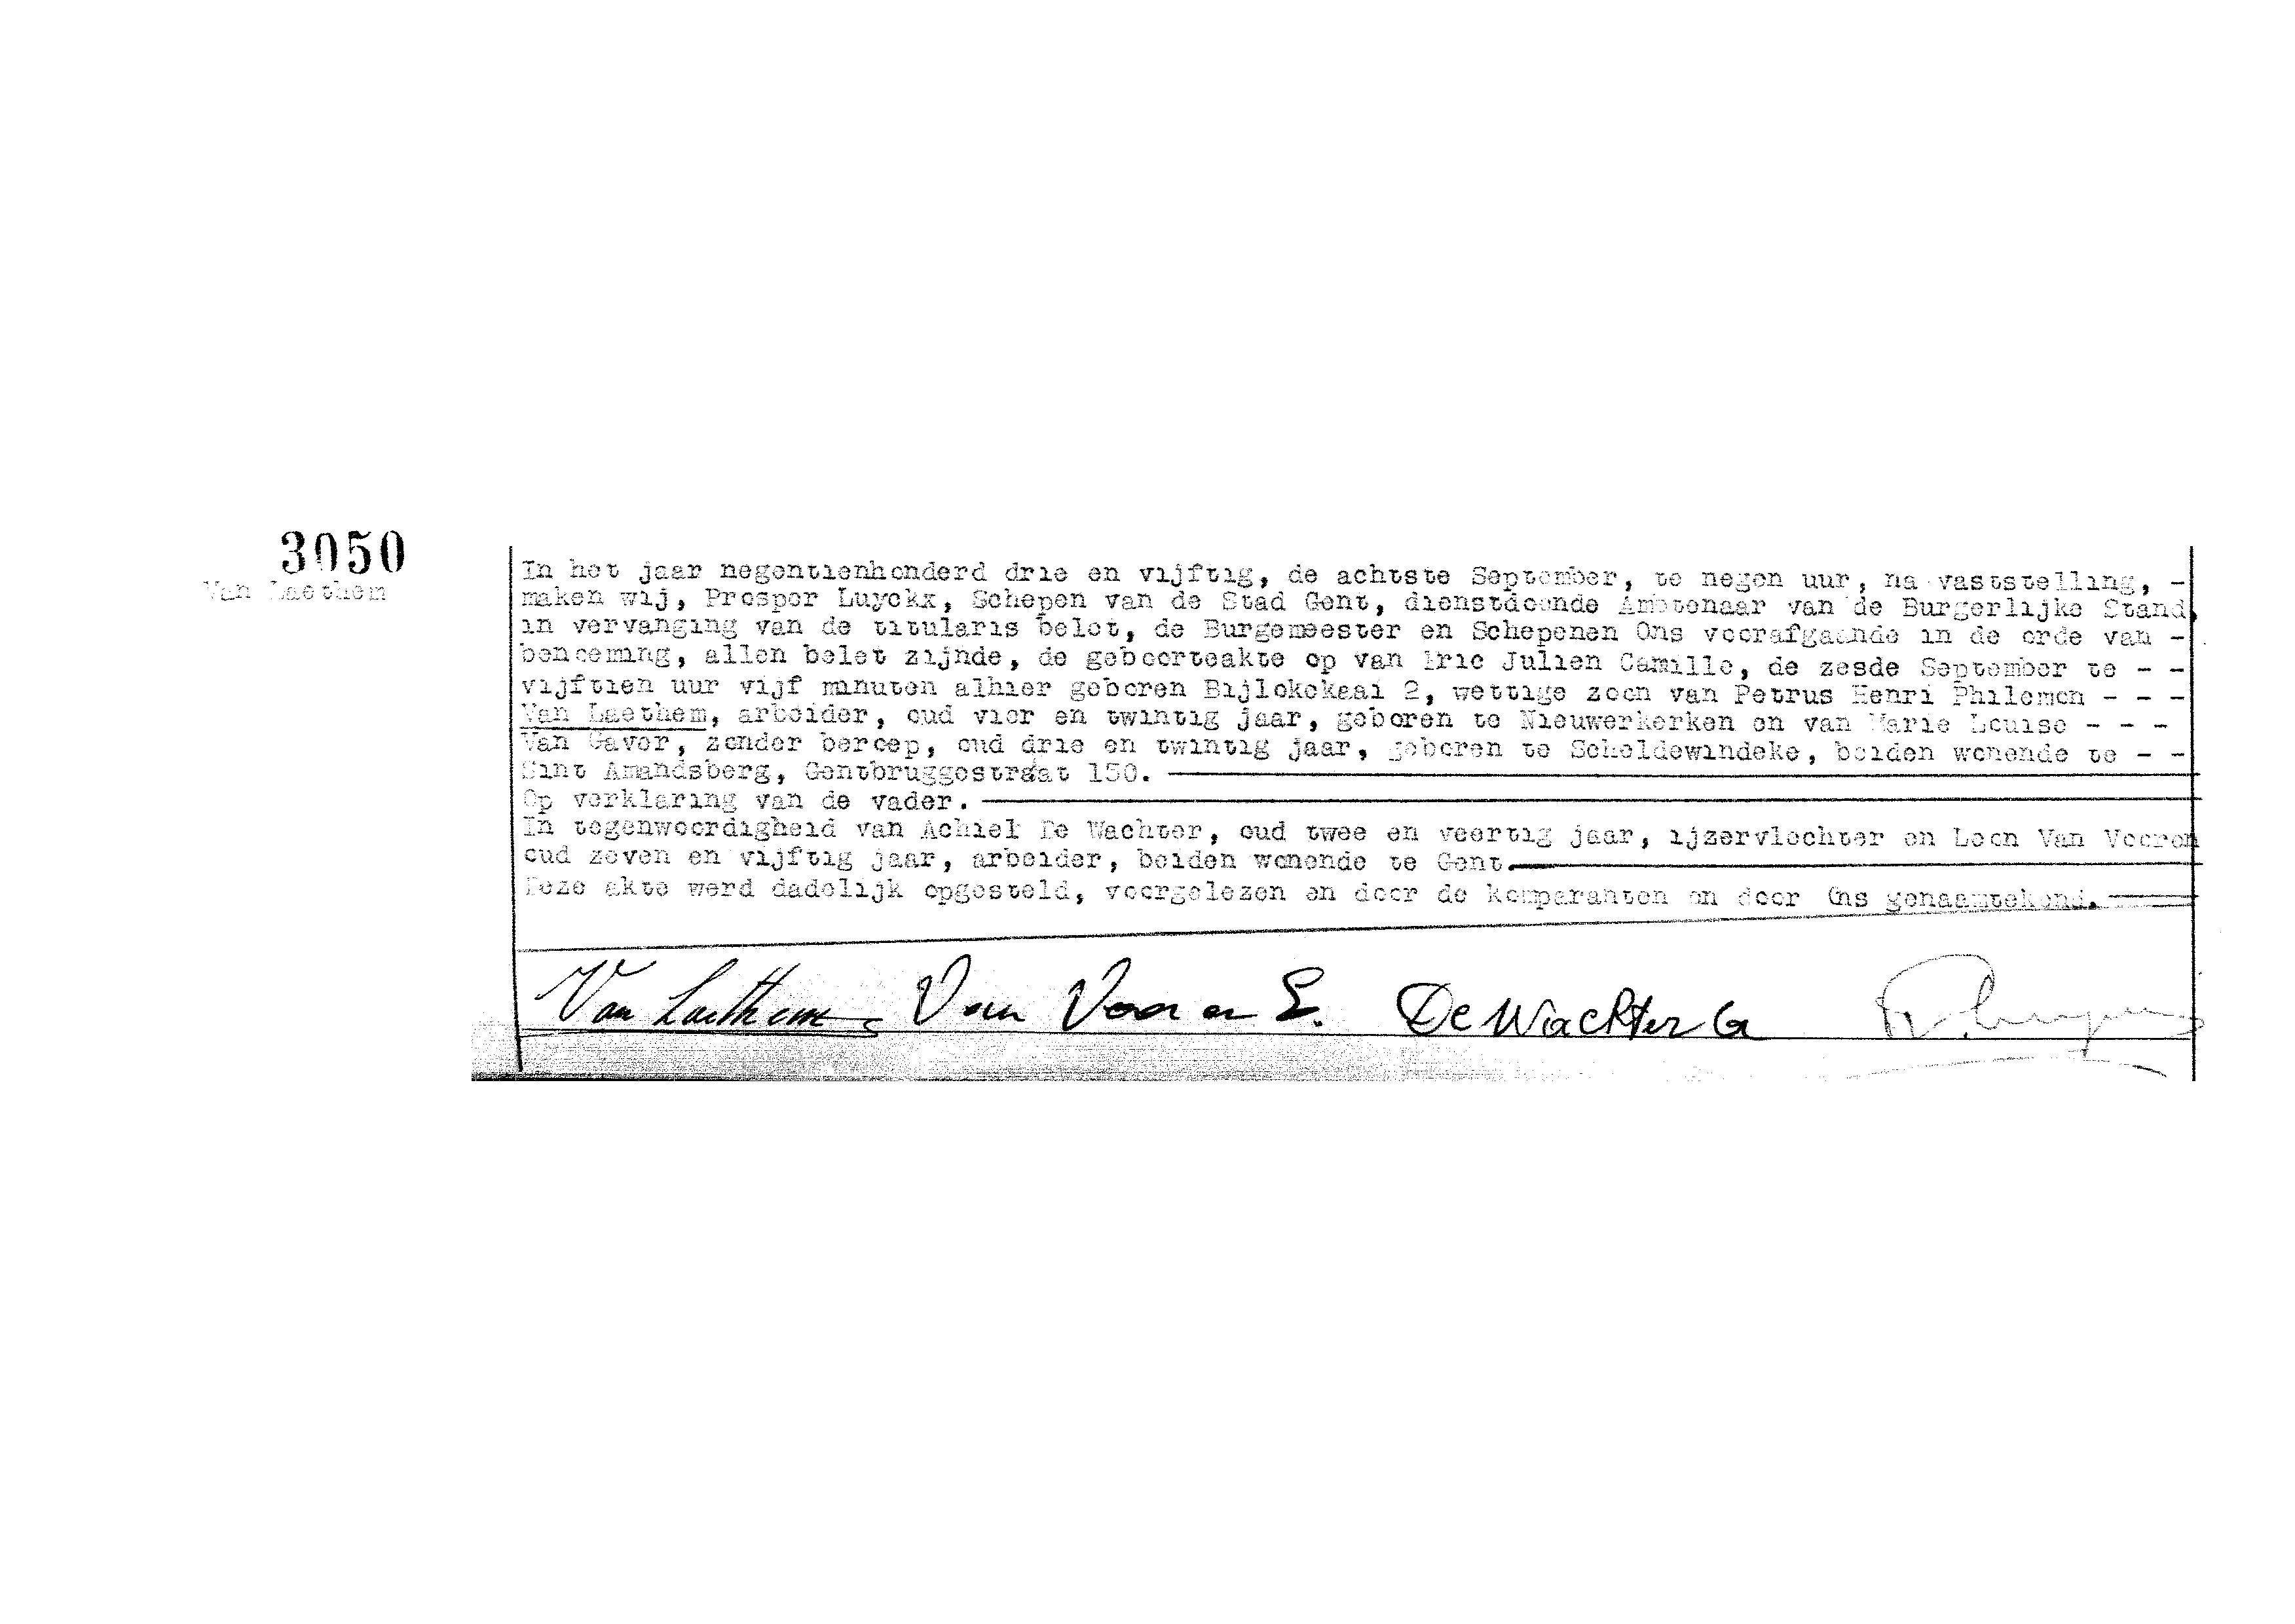 3050
Van Laethem
In het jaar negentienhonderd drie en vijftig, de achtste September, te negen uur, na vaststelling, -
maken wij, Prosper Luyckx, Schepen van de Stad Gent, dienstdoende Ambtenaar van de Burgerlijke Stand,
in vervanging van de titularis belet, de Burgemeester en Schepenen Ons voorafgaande in de orde van -
benoeming, allen belet zijnde, de geboorteakte op van Eric Julien Camille, de zesde September te - -
vijftien uur vijf minuten alhier geboren Bijlokekaai 2, wettige zoon van Petrus Henri Philemon - - -
Van Laethem, arbeider, oud vier en twintig jaar, geboren te Nieuwerkerken en van Marie Louise - - -
Van Gaver, zonder beroep, oud drie en twintig jaar, geboren te Scheldewindeke, beiden wonende te - -
Sint Amandsberg, Gentbruggestraat 150.
Op verklaring van de vader.
In tegenwoordigheid van Achiel De Wachter, oud twee en veertig jaar, ijzervlechter en Leon Van Vooren
oud zeven en vijftig jaar, arbeider, beiden wonende te Gent.
Deze akte werd dadelijk opgesteld, voorgelezen en door de komparanten en door Ons genaamtekend.
Van Laethem Van Vooren L. De Wachter A